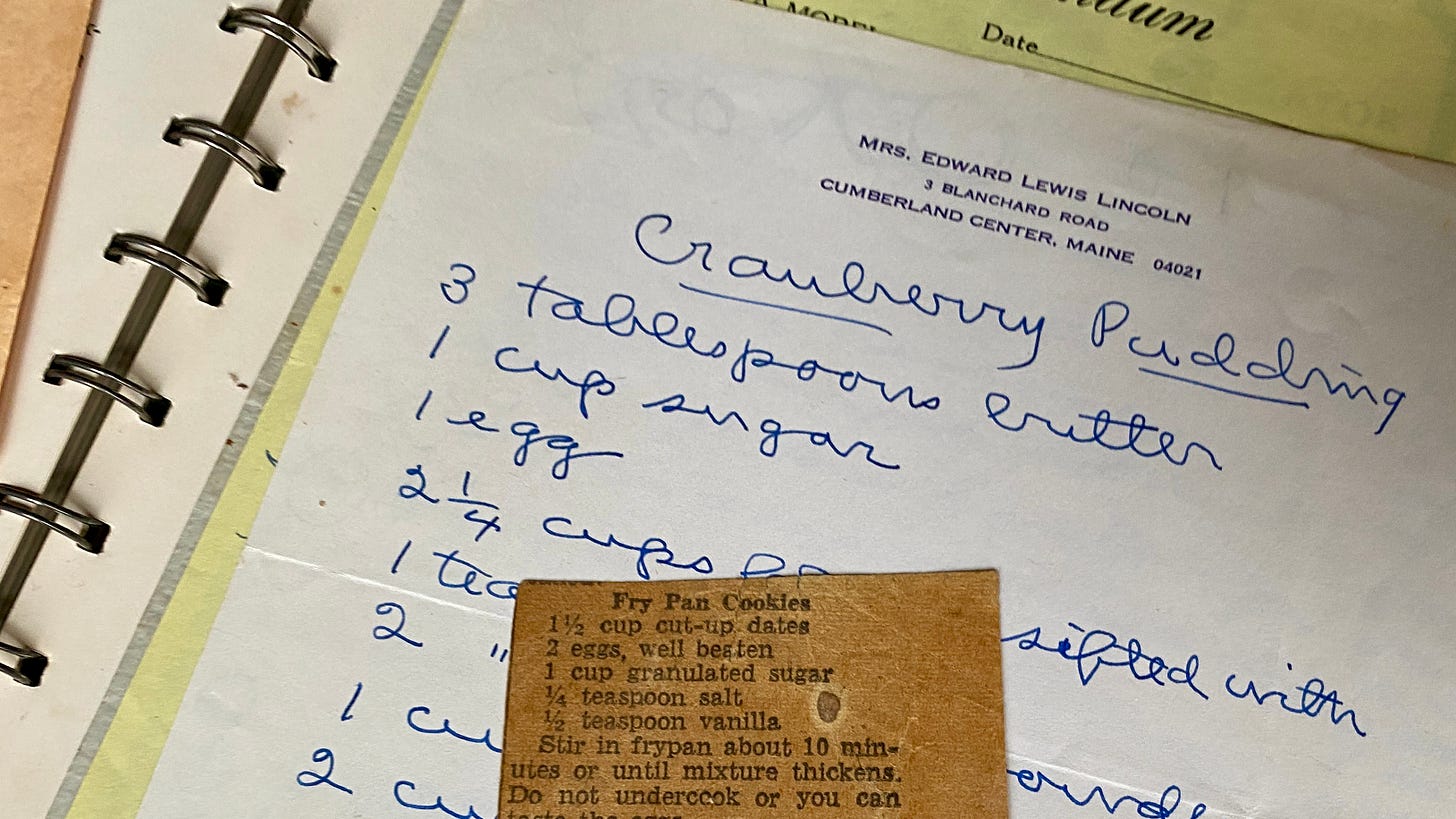 Date
MRS. EDWARD LEWIS LINCOLN
3 BLANCHARD ROAD
CUMBERLAND CENTER, MAINE 04021
Cranberry Pudding
3 tablespoons butter
1 cup sugar
1 egg
2 1/4 cups
1
sifted with
2 "
1
2
Fry Pan Cookies
1½ cup cut-up dates
2 eggs, well beaten
1 cup granulated sugar
¼ teaspoon salt
½ teaspoon vanilla
Stir in frypan about 10 min-
utes or until mixture thickens.
Do not undercook or you can